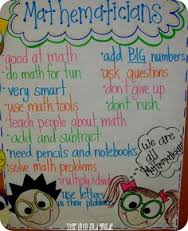 Mathematicians
good at math
do math for fun
very smart
use math tools
teach people about math
add and subtract
need pencils and notebooks
solve math problems
multiply
use letters
in their problems
add BIG numbers
ask questions
don't give up
don't rush
We are
all
Mathematicians!